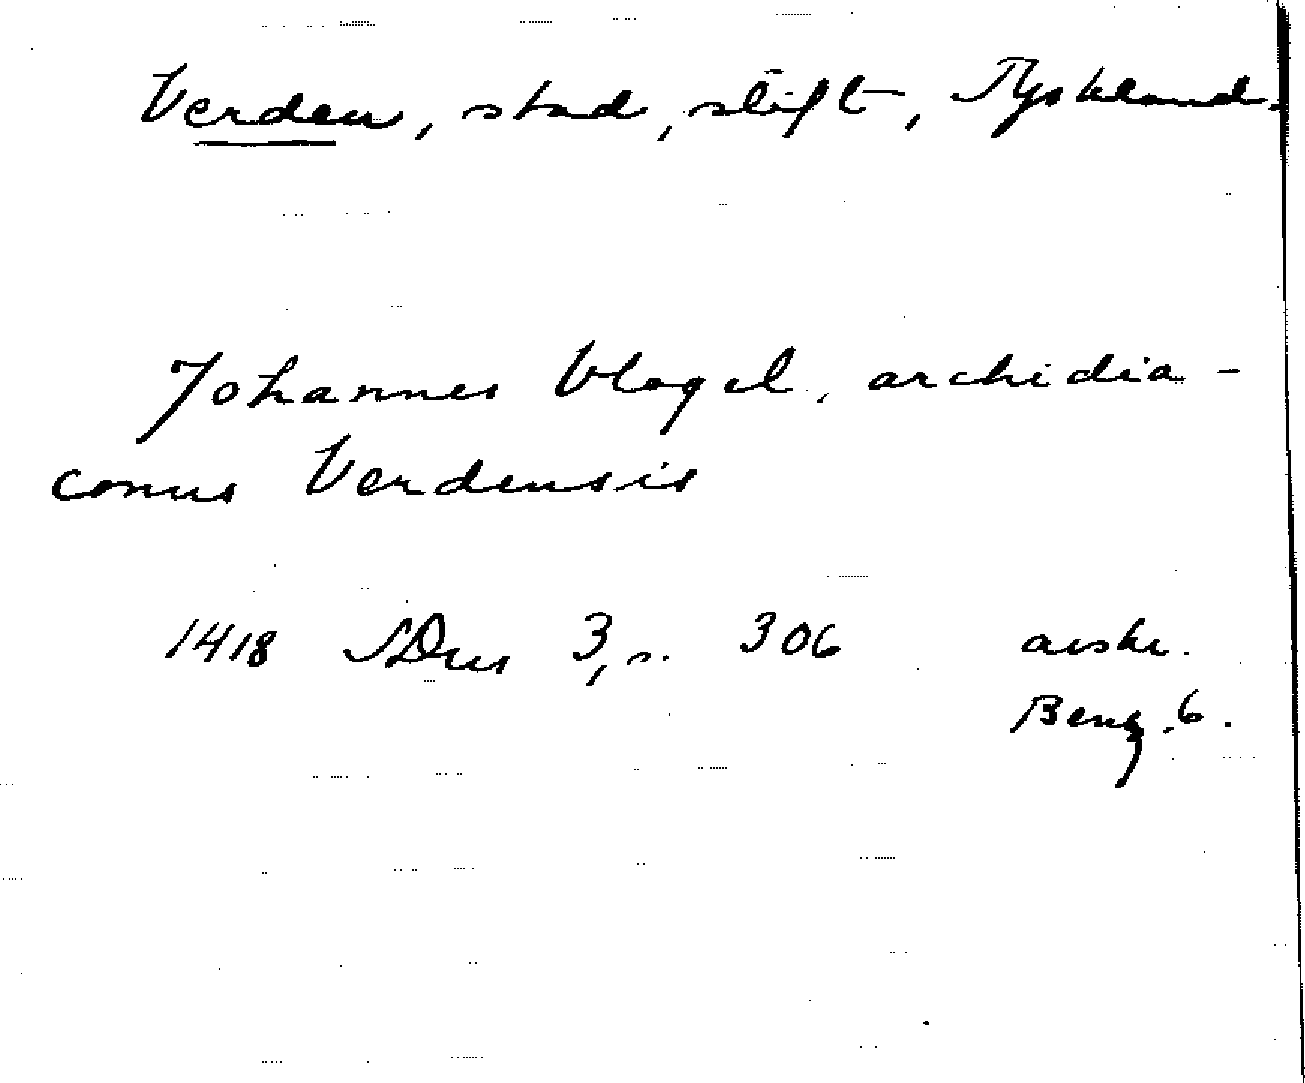 Verden, stad, stift, Tyskland.
Johannes Vlogel, archidia-
conus Verdensis
1418 SDns 3, s. 306 avskr.
Benz. 6.